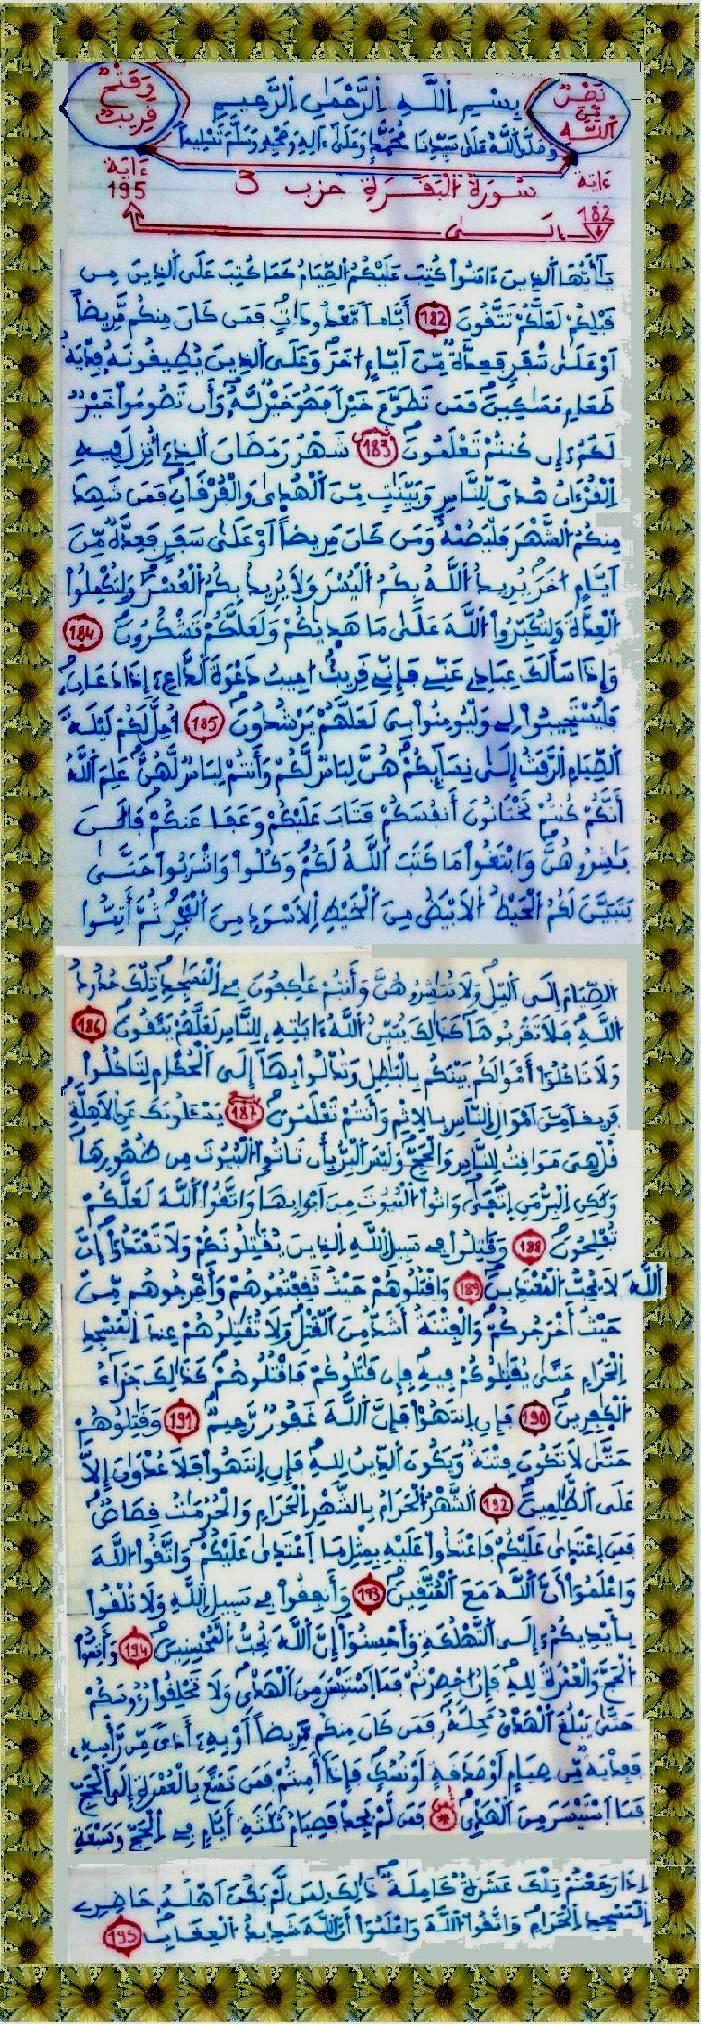 نصر من الله
بسم الله الرحمن الرحيم
وفتح قريب
وصلى الله على سيدنا محمد وعلى ءاله وصحبه وسلم تسليما
سورة البقرة حزب 3
ءاية 182
إلى
ءاية 195
يأيها الذين ءامنوا كتب عليكم الصيام كما كتب على الذين من
قبلكم لعلكم تتقون 182 أياما معدودات فمن كان منكم مريضا
او على سفر فعدة من ايام اخر وعلى الذين يطيقونه فدية
طعام مساكين فمن تطوع خيرا فهو خير له وأن تصوموا خير
لكم إن كنتم تعلمون 183 شهر رمضان الذي انزل فيه
القرءان هدى للناس وبينت من الهدى والفرقان فمن شهد
منكم الشهر فليصمه ومن كان مريضا او على سفر فعدة من
ايام اخر يريد الله بكم اليسر ولا يريد بكم العسر ولتكملوا
العدة ولتكبروا الله على ما هديكم ولعلكم تشكرون 184
وإذا سألك عبادي عني فإني قريب اجيب دعوة الداع إذا دعان
فليستجيبوا لي وليومنوا بي لعلهم يرشدون 185 احل لكم ليلة
الصيام الرفث إلى نسائكم هن لباس لكم وأنتم لباس لهن علم الله
أنكم كنتم تختانون أنفسكم فتاب عليكم وعفا عنكم فالن
باشروهن وابتغوا ما كتب الله لكم وكلوا واشربوا حتى
يتبين لكم الخيط الابيض من الخيط الاسود من الفجر ثم أتموا
الصيام إلى اليل ولا تباشروهن وأنتم عاكفون في المسجد تلك حدود
الله فلا تقربوها كذالك يبين الله ءايته للناس لعلهم يتقون 186
ولا تاكلوا أموالكم بينكم بالبطل وتدلوا بها إلى الحكام لتاكلوا
فريقا من اموال الناس بالاثم وأنتم تعلمون 187 يسئلونك عن الاهلة
قل هي مواقيت للناس والحج وليس البر بأن تاتوا البيوت من ظهورها
ولكن البر من إتقى واتوا البيوت من ابوابها واتقوا الله لعلكم
تفلحون 188 وقتلوا في سبيل الله الذين يقتلونكم ولا تعتدوا إن
الله لا يحب المعتدين 189 واقتلوهم حيث ثقفتموهم وأخرجوهم من
حيث أخرجوكم والفتنة أشد من القتل ولا تقتلوهم عند المسجد
الحرام حتى يقتلوكم فيه فإن قتلوكم فاقتلوهم كذالك جزاء
الكفرين 190 فإن إنتهوا فإن الله غفور رحيم 191 وقتلوهم
حتى لا تكون فتنة ويكون الدين لله فإن إنتهوا فلا عدوان إلا
على الظلمين 192 الشهر الحرام بالشهر الحرام والحرمت قصاص
فمن إعتدى عليكم فاعتدوا عليه بمثل ما اعتدى عليكم واتقوا الله
واعلموا أن الله مع المتقين 193 وأنفقوا في سبيل الله ولا تلقوا
بأيديكم إلى التهلكة وأحسنوا إن الله يحب المحسنين 194 وأتموا
الحج والعمرة لله فإن احصرتم فما استيسر من الهدي ولا تحلقوا رءوسكم
حتى يبلغ الهدي محله فمن كان منكم مريضا او به أذى من رأسه
ففدية من صيام او صدقة او نسك فإذا أمنتم فمن تمتع بالعمرة إلى الحج
فما استيسر من الهدي فمن لم يجد فصيام ثلثة أيام في الحج وسبعة
إذا رجعتم تلك عشرة كاملة ذالك لمن لم يكن اهله حاضري
المسجد الحرام واتقوا الله واعلموا أن الله شديد العقاب 195